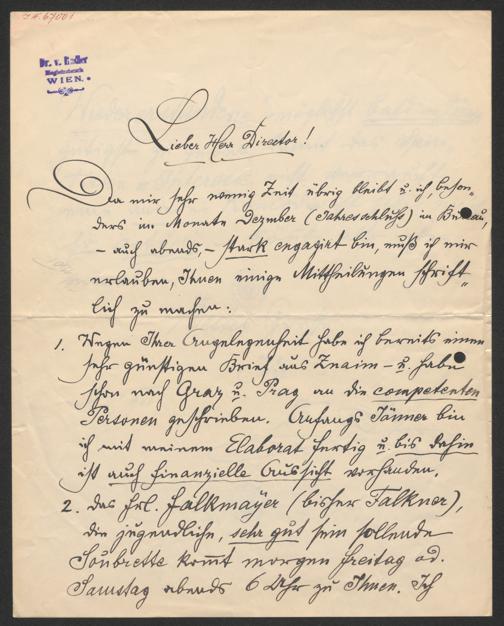 J.N. 67001
Dr. v. Radler
Magistratsrath
WIEN.
Lieber Herr Director!
Da mir sehr wenig Zeit übrig bleibt u. ich, beson-
ders im Monate Dezember (Jahresschluß) im Bureau,
– auch abends, – stark engagirt bin, muß ich mir
erlauben, Ihnen einige Mittheilungen schrift-
lich zu machen:
1. Wegen Ihrer Angelegenheit habe ich bereits einen
sehr günstigen Brief aus Znaim – u. habe
schon nach Graz u. Prag an die competenten
Personen geschrieben. Anfangs Jänner bin
ich mit meinem Elaborat fertig u. bis dahin
ist auch finanzielle Aussicht vorhanden.
2. das Frl. Falkmayer (bisher Falkner),
die jugendliche, sehr gut sein sollende
Soubrette kommt morgen Freitag od.
Samstag abends 6 Uhr zu Ihnen. Ich